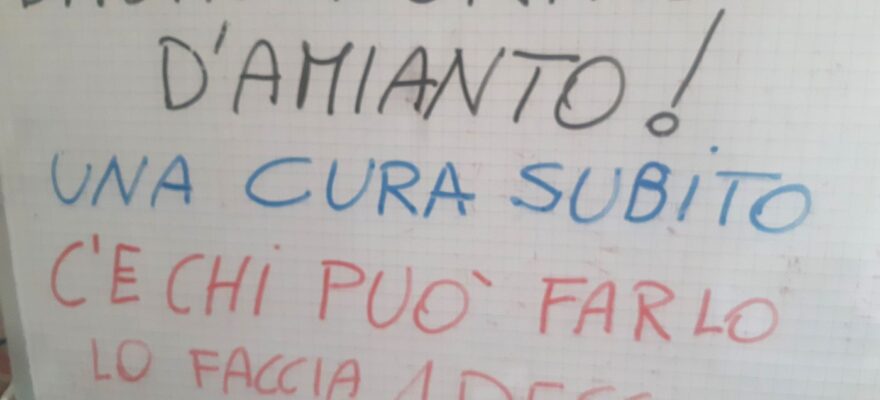 D'AMIANTO!
UNA CURA SUBITO
C'E CHI PUO' FARLO
LO FACCIA